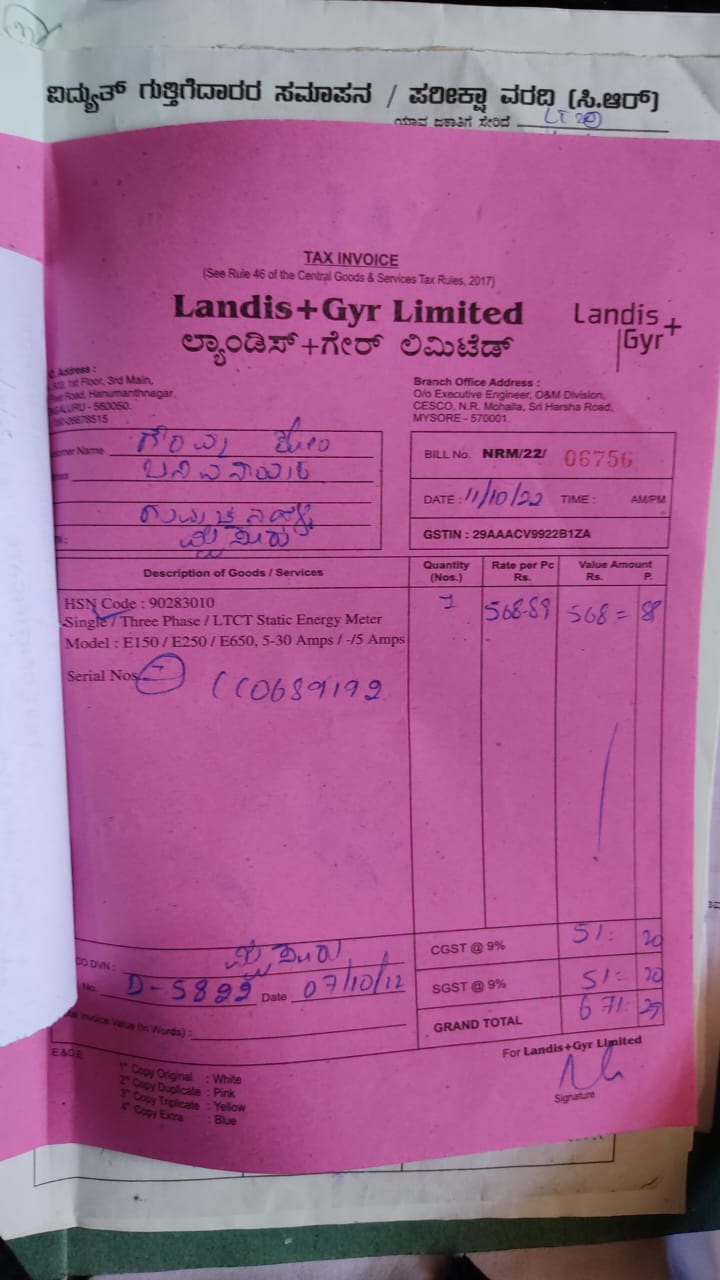 ವಿದ್ಯುತ್ ಗುತ್ತಿಗೆದಾರರ ಸಮಾಪನ / ಪರೀಕ್ಷಾ ವರದಿ (ಸಿ.ಆರ್)
ಯಾವ ಜಕಾತಿಗೆ ಸೇರಿದೆ LT
TAX INVOICE
(See Rule 46 of the Central Goods & Services Tax Rules, 2017)
Landis+Gyr Limited
ಲ್ಯಾಂಡಿಸ್+ಗೇರ್ ಲಿಮಿಟೆಡ್
Landis+
Gyr
Address :
1st Floor, 3rd Main,
Road, Hanumanthnagar,
- 560050.
26678515
Branch Office Address :
O/o Executive Engineer, O&M Division,
CESCO, N.R. Mohalla, Sri Harsha Road,
MYSORE - 570001.
Name
ಮೈಸೂರು
BILL No. NRM/22/ 06756
DATE : 11/10/22 TIME : AM/PM
GSTIN : 29AAACV9922B1ZA
Description of Goods / Services
Quantity
(Nos.)
Rate per Pc
Rs.
Value Amount
Rs. P.
HSN Code : 90283010
Single / Three Phase / LTCT Static Energy Meter
Model : E150 / E250 / E650, 5-30 Amps / -/5 Amps
1 568-89 568=
Serial Nos
0689192
DVN : ಮೈಸೂರು
No. D-5899 Date 07/10/22
Invoice Value (In Words) :
CGST @ 9% 51= 20
SGST @ 9% 51= 20
GRAND TOTAL 671= 29
E & O E
For Landis+Gyr Limited
1st Copy Original : White
2nd Copy Duplicate : Pink
3rd Copy Triplicate : Yellow
4th Copy Extra : Blue
Signature